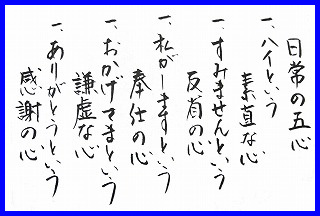 日常の五心
一、ハイという
素直な心
一、すみませんという
反省の心
一、私がしますという
奉仕の心
一、おかげさまという
謙虚な心
一、ありがとうという
感謝の心